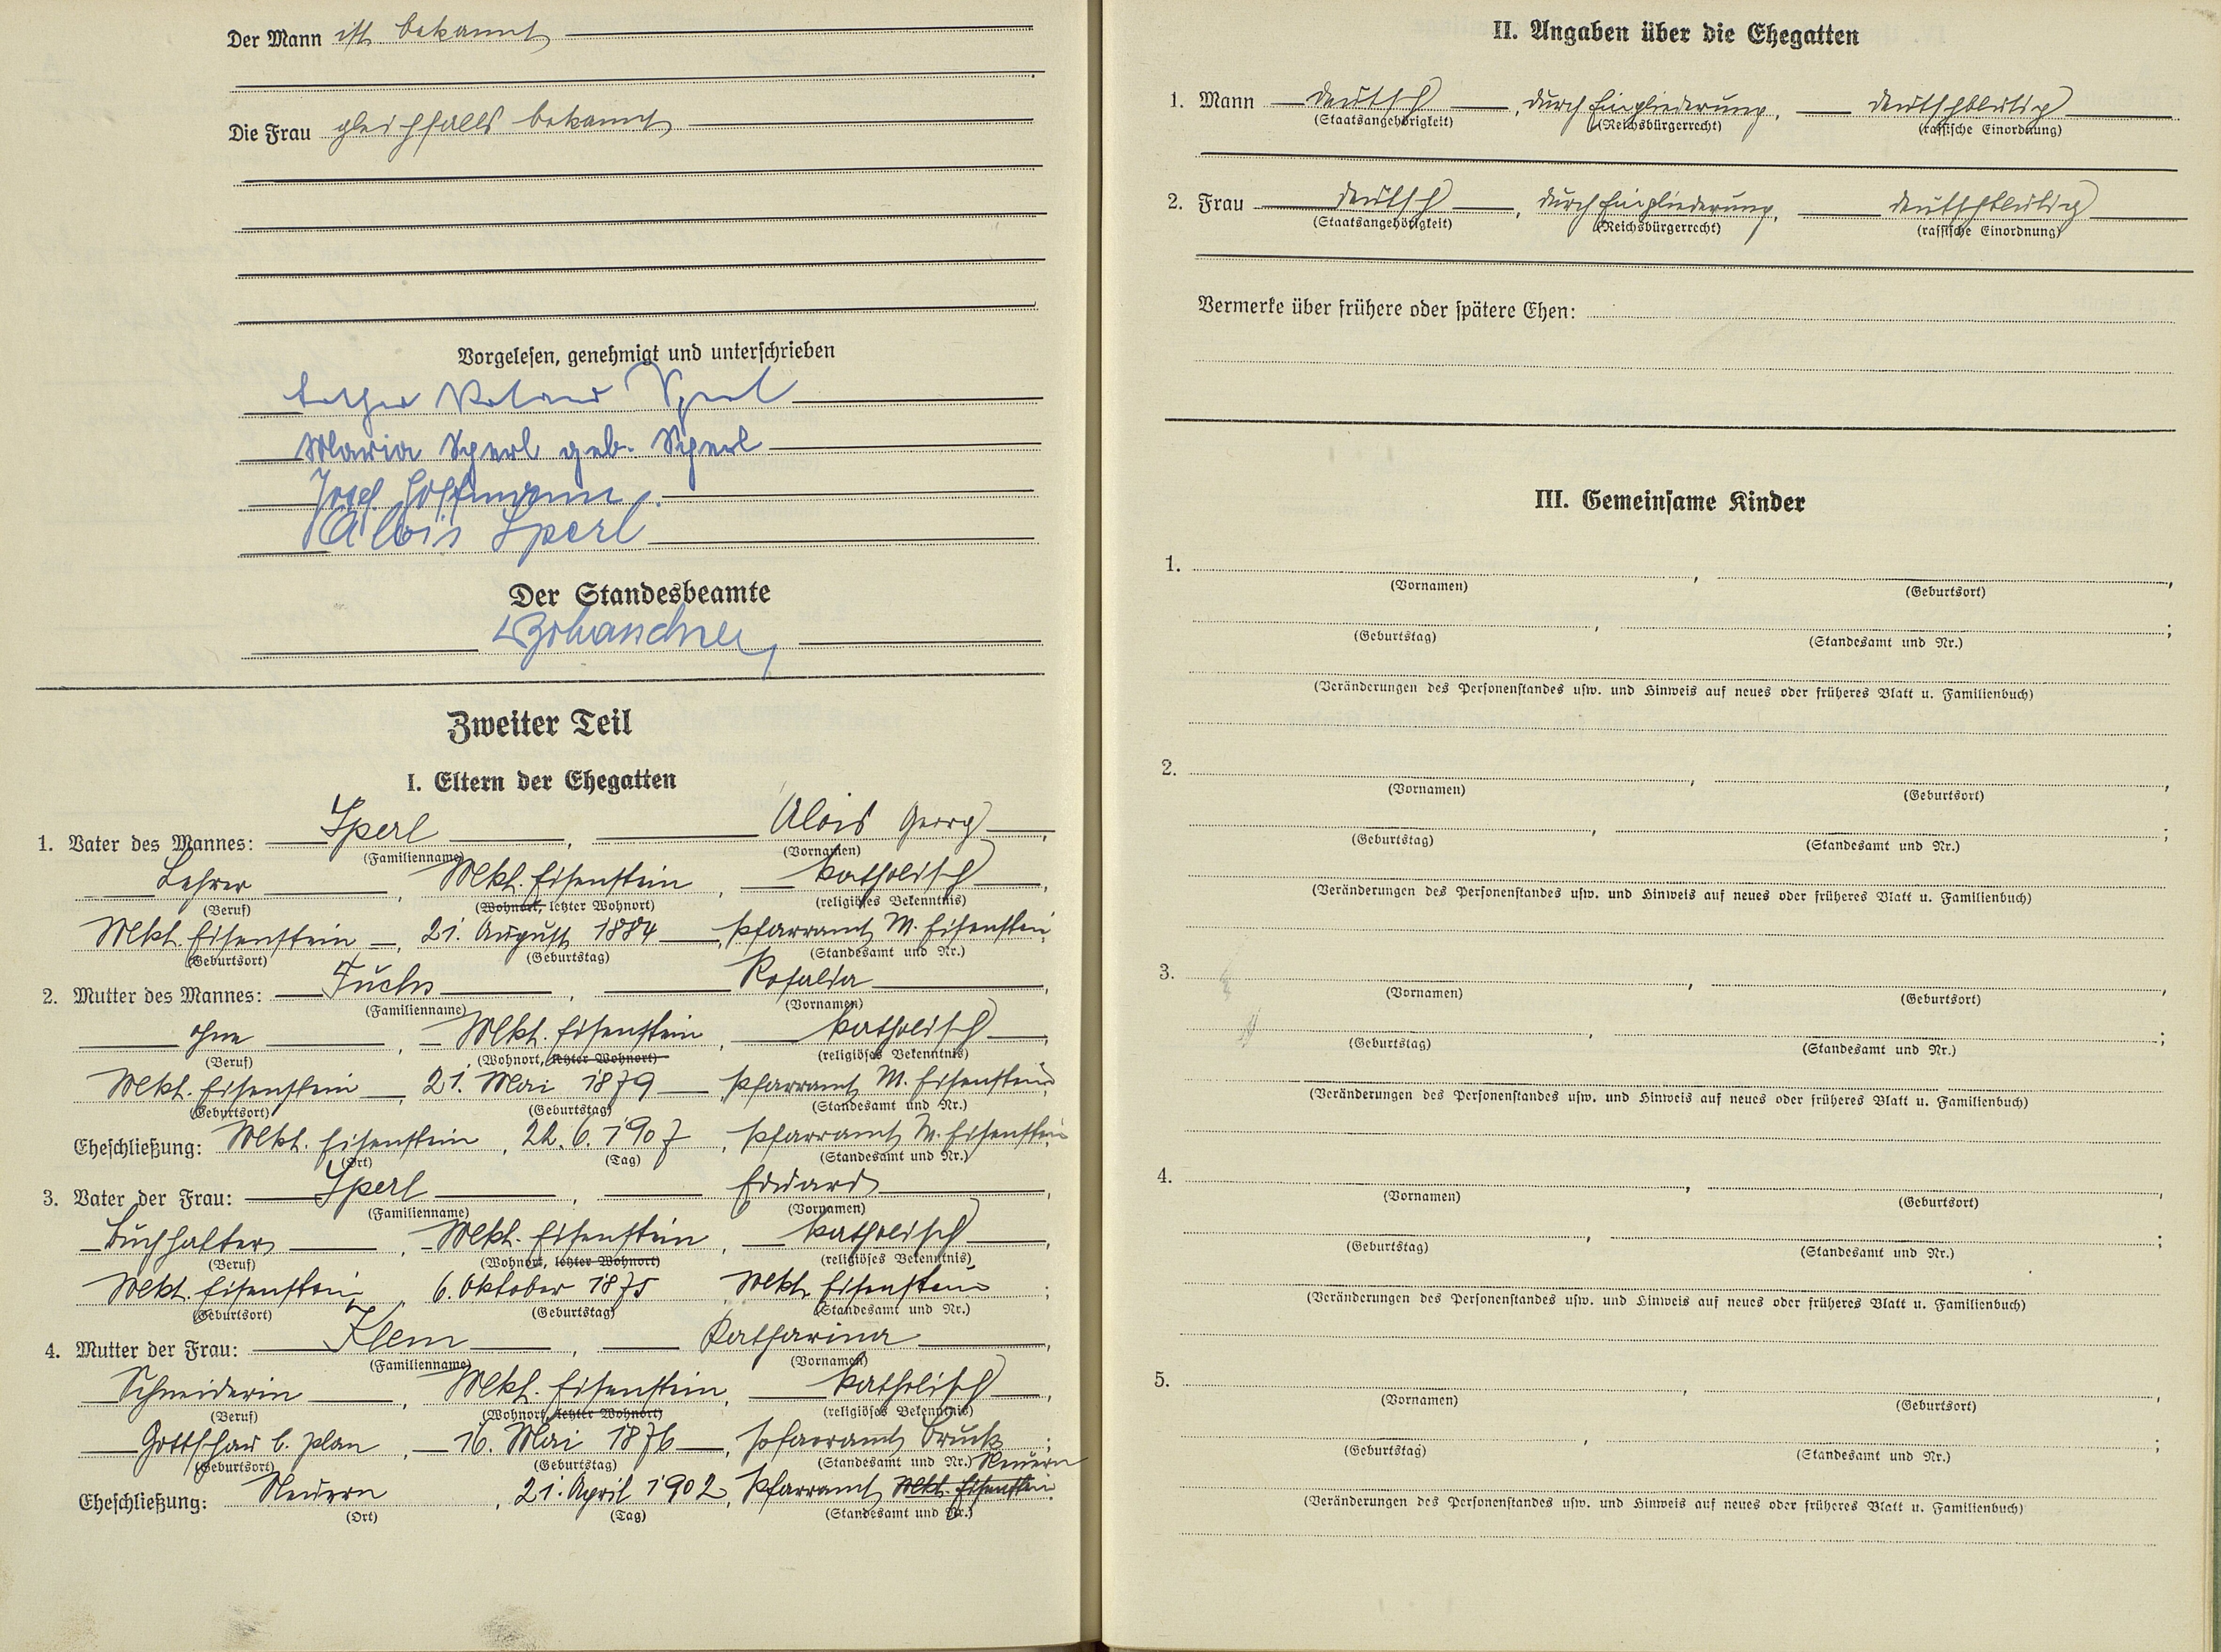 Der Mann ist bekannt
Die Frau gleichfalls bekannt
Vorgelesen, genehmigt und unterschrieben
Sperl
Maria Sperl geb. Sperl
Josef Hoffmann
Alois Sperl
Der Standesbeamte
Zweiter Teil
I. Eltern der Ehegatten
1. Vater des Mannes: Sperl, Alois Georg,
(Familienname) (Vornamen)
Lehrer, Mkt. Eisenstein, katholisch,
(Beruf) (Wohnort, letzter Wohnort) (religiöses Bekenntnis)
Mkt. Eisenstein, 21. August 1884, Pfarramt M. Eisenstein
(Geburtsort) (Geburtstag) (Standesamt und Nr.)
2. Mutter des Mannes: Fuchs, Rosalia,
(Familienname) (Vornamen)
ohne, Mkt. Eisenstein, katholisch,
(Beruf) (Wohnort, letzter Wohnort) (religiöses Bekenntnis)
Mkt. Eisenstein, 21. Mai 1879, Pfarramt M. Eisenstein
(Geburtsort) (Geburtstag) (Standesamt und Nr.)
Eheschließung: Mkt. Eisenstein, 22. 6. 1907, Pfarramt M. Eisenstein
(Ort) (Tag) (Standesamt und Nr.)
3. Vater der Frau: Sperl, Eduard,
(Familienname) (Vornamen)
Buchhalter, Mkt. Eisenstein, katholisch,
(Beruf) (Wohnort, letzter Wohnort) (religiöses Bekenntnis)
Mkt. Eisenstein, 6. Oktober 1875 Mkt. Eisenstein;
(Geburtsort) (Geburtstag) (Standesamt und Nr.)
4. Mutter der Frau: Klem, Katharina,
(Familienname) (Vornamen)
Schneiderin, Mkt. Eisenstein, katholisch,
(Beruf) (Wohnort, letzter Wohnort) (religiöses Bekenntnis)
Gottschau b. Plan, 16. Mai 1876, Pfarramt Bruck;
(Geburtsort) (Geburtstag) (Standesamt und Nr.) Neuern
Eheschließung: Neuern, 21. April 1902, Pfarramt Mkt. Eisenstein
(Ort) (Tag) (Standesamt und Nr.)
II. Angaben über die Ehegatten
1. Mann deutsch, durch Eingliederung, deutschblütig
(Staatsangehörigkeit) (Reichsbürgerrecht) (rassische Einordnung)
2. Frau deutsch, durch Eingliederung, deutschblütig
(Staatsangehörigkeit) (Reichsbürgerrecht) (rassische Einordnung)
Vermerke über frühere oder spätere Ehen:
III. Gemeinsame Kinder
1. , ,
(Vornamen) (Geburtsort)
, ;
(Geburtstag) (Standesamt und Nr.)
(Veränderungen des Personenstandes usw. und Hinweis auf neues oder früheres Blatt u. Familienbuch)
2. , ,
(Vornamen) (Geburtsort)
, ;
(Geburtstag) (Standesamt und Nr.)
(Veränderungen des Personenstandes usw. und Hinweis auf neues oder früheres Blatt u. Familienbuch)
3. , ,
(Vornamen) (Geburtsort)
, ;
(Geburtstag) (Standesamt und Nr.)
(Veränderungen des Personenstandes usw. und Hinweis auf neues oder früheres Blatt u. Familienbuch)
4. , ,
(Vornamen) (Geburtsort)
, ;
(Geburtstag) (Standesamt und Nr.)
(Veränderungen des Personenstandes usw. und Hinweis auf neues oder früheres Blatt u. Familienbuch)
5. , ,
(Vornamen) (Geburtsort)
, ;
(Geburtstag) (Standesamt und Nr.)
(Veränderungen des Personenstandes usw. und Hinweis auf neues oder früheres Blatt u. Familienbuch)